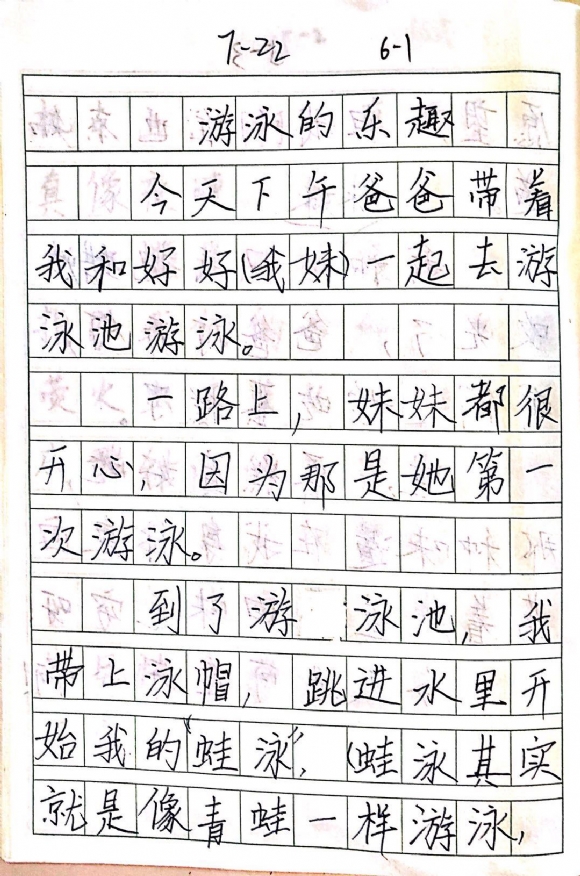 7-22 6-1
游泳的乐趣
今天下午爸爸带着
我和好好(我妹)一起去游
泳池游泳。
一路上,妹妹都很
开心,因为那是她第一
次游泳。
到了游泳池,我
带上泳帽,跳进水里开
始我的“蛙泳”,(蛙泳其实
就是像青蛙一样游泳,